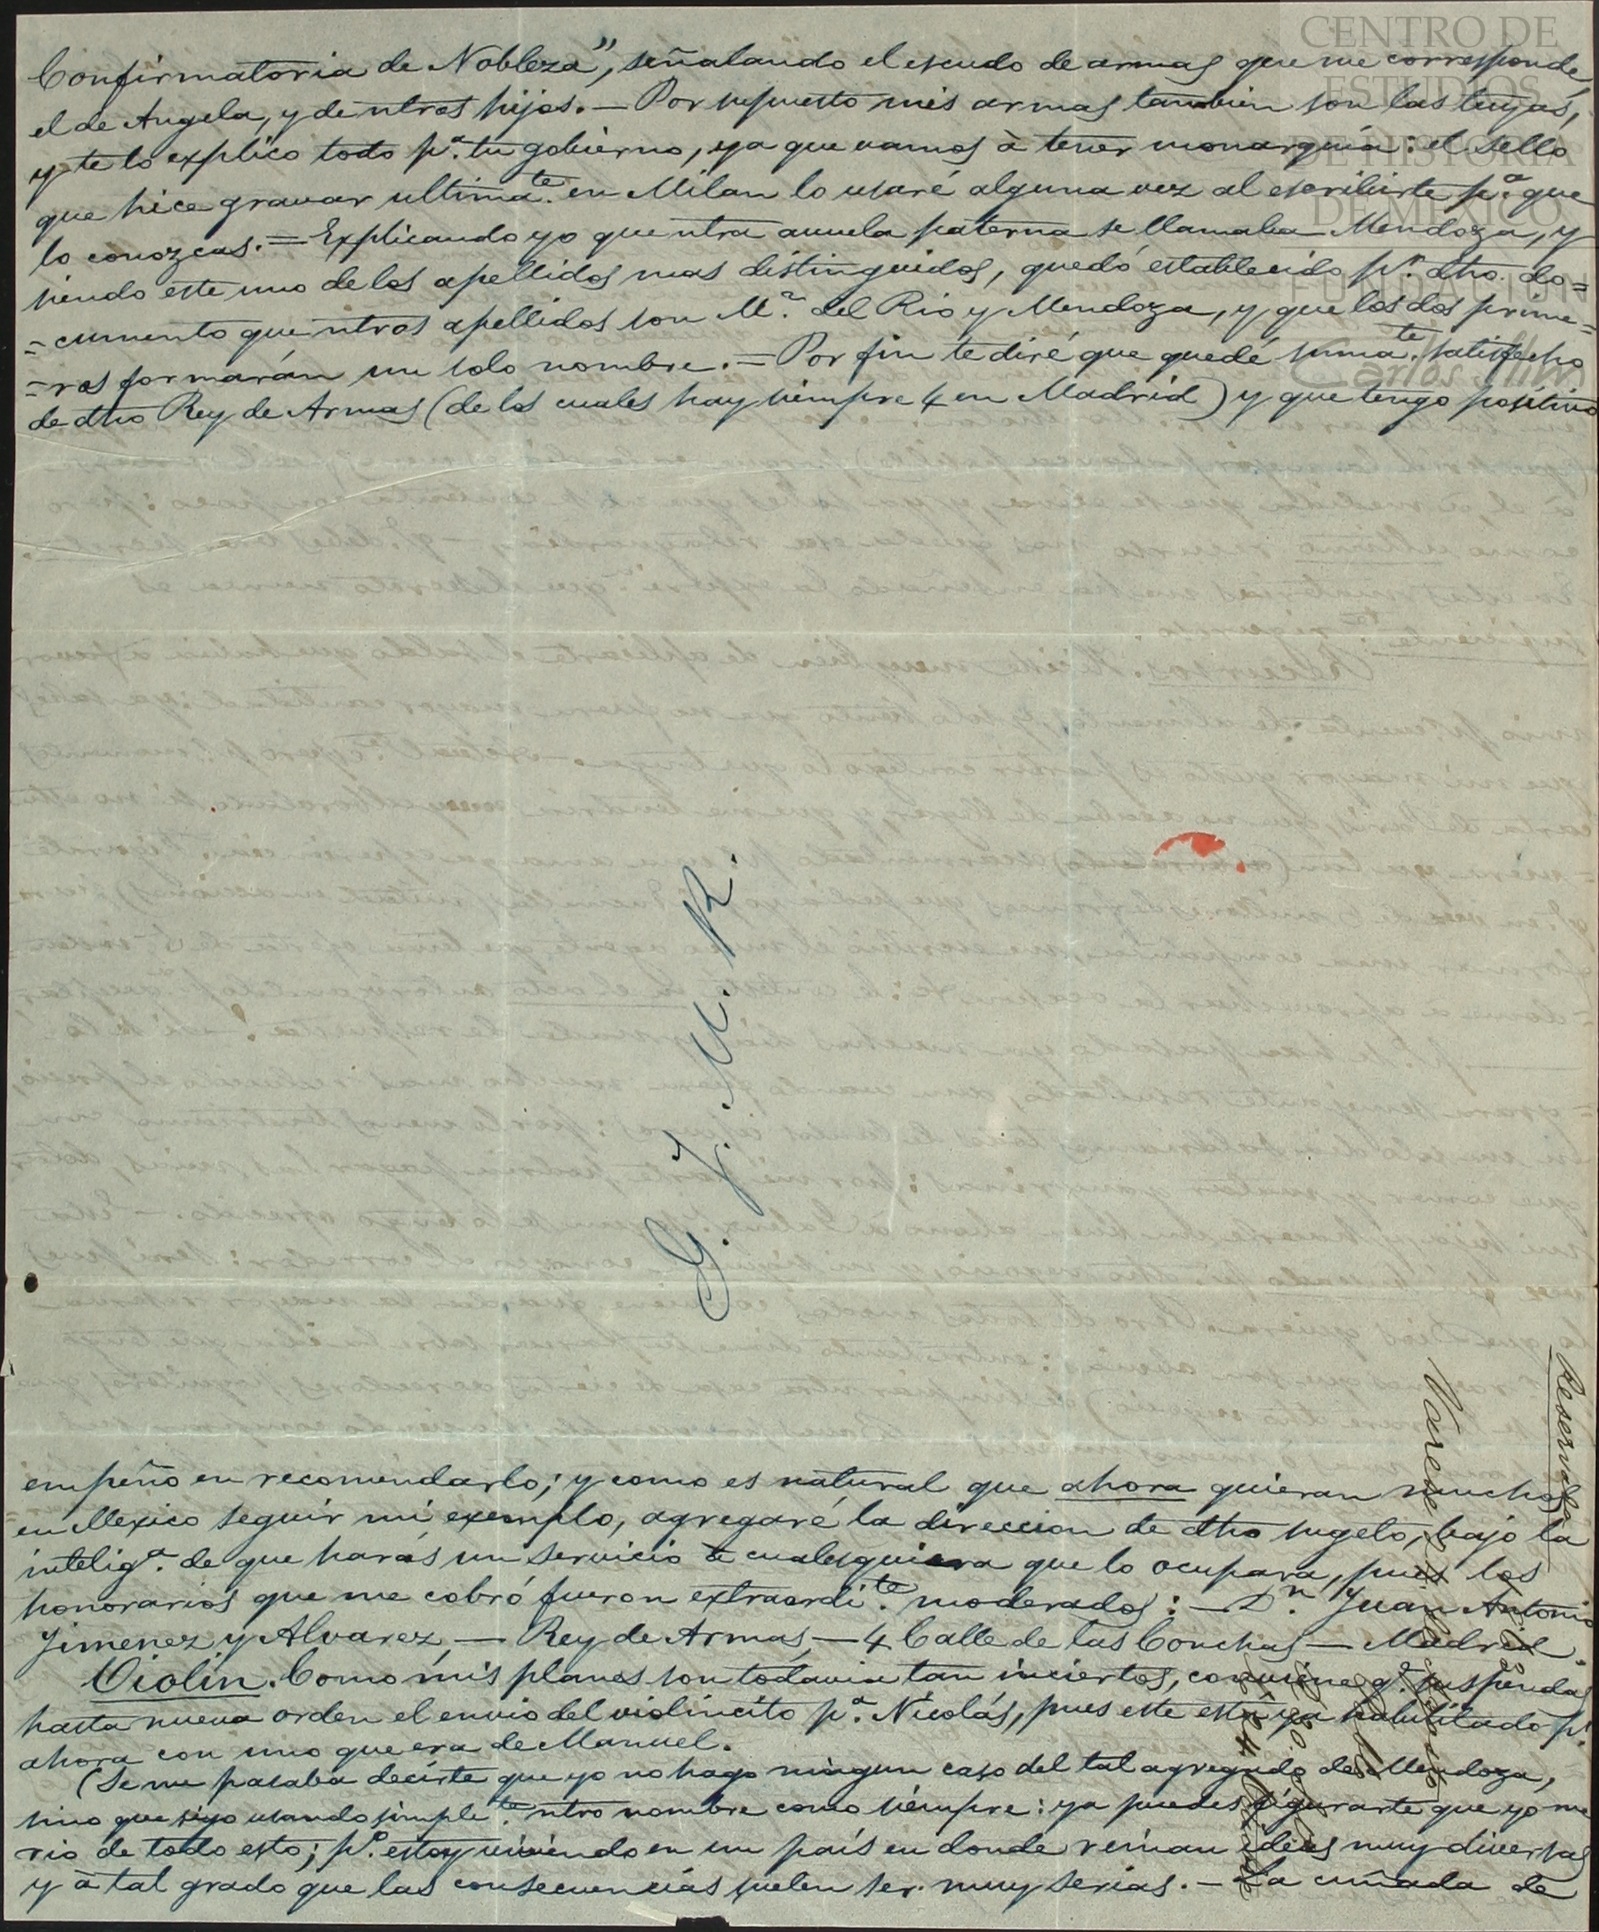 Confirmatoria de Nobleza", señalando el escudo de armas que me corresponde,
el de Angela, y de ntros hijos. — Por supuesto mis armas tambien son las tuyas,
y te lo explico todo pª. tu gobierno, ya que vamos à tener monarquía: el sello
que hice gravar ultimaᵗᵉ. en Milan lo usaré alguna vez al escribirte pª. que
lo conozcas. = Explicando yo que ntra avuela paterna se llamaba Mendoza, y
siendo este uno de los apellidos mas distinguidos, quedó establecido pʳ. dho. do=
=cumento que ntros apellidos son Mⁿ. del Rio y Mendoza, y que los dos prime=
=ros formarán un solo nombre. = Por fin te diré que quedé sumaᵗᵉ. satisfecho
de dho Rey de Armas (de los cuales hay siempre 4 en Madrid) y que tengo positivo
G. J. M. R.
empeño en recomendarlo; y como es natural que ahora quieran muchos
en Mexico seguir mi exemplo, agregaré la direccion de dho sugeto, bajo la
inteligª. de que harás un servicio à cualesquiera que lo ocupara, pues los
honorarios que me cobró fueron extraordiᵗᵉ. moderados: — Dⁿ. Juan Antonio
Jimenez y Alvarez — Rey de Armas, — 4 Calle de las Conchas — Madrid.
Violin. Como mis planes son todavia tan inciertos, conviene qᵉ. suspendas
hasta nueva orden el envio del violincito pª. Nicolás, pues este está ya habilitado pʳ.
ahora con uno que era de Manuel.
(Se me pasaba decirte que yo no hago ningun caso del tal agregado de Mendoza,
sino que sigo usando simpleᵗᵉ. ntro nombre como siempre: ya puedes figurarte que yo me
rio de todo esto; pº. estoy viviendo en un país en donde reinan ideas muy diversas
y à tal grado que las consecuencias suelen ser muy serias. — La cuñada de
Reservada
Varese
CENTRO DE
ESTUDIOS
DE HISTORIA
DE MEXICO
FUNDACIÓN
Carlos Slim